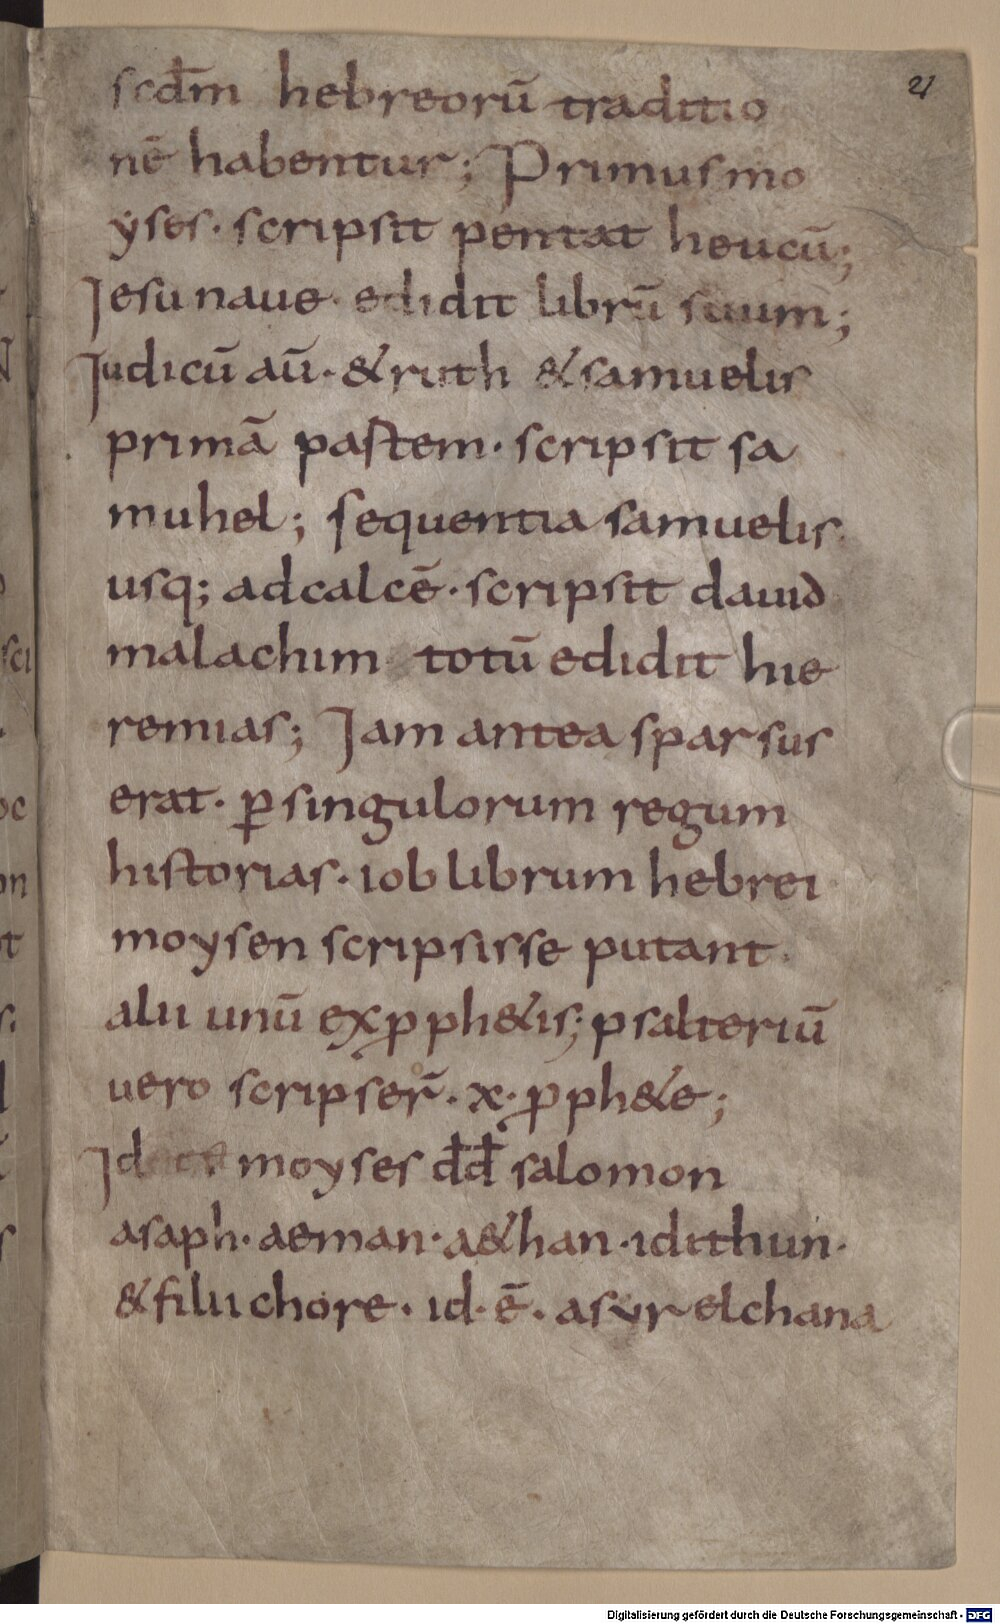 21
scdm̄ hebreorū traditio
nē habentur; Primus mo
yses· scripsit pentat heucū;
Iesu naue· edidit librū suum;
Iudicū aū· & ruth & samuelis
primā pastem· scripsit sa
muhel; sequentia samuelis
usq; adcalcē· scripsit dauid
malachim totū edidit hie
remias; Iam antea sparsus
erat· ꝑ singulorum regum
historias· iob librum hebrei
moysen scripsisse putant·
alii unū ex ꝓph&is; psalteriū
uero scripser̄· x· ꝓph&e;
moyses d̄d̄ salomon
asaph· aeman· a&han· idithun·
& filii chore· id· ē· asyr elchana
Digitalisierung gefördert durch die Deutsche Forschungsgemeinschaft - DFG